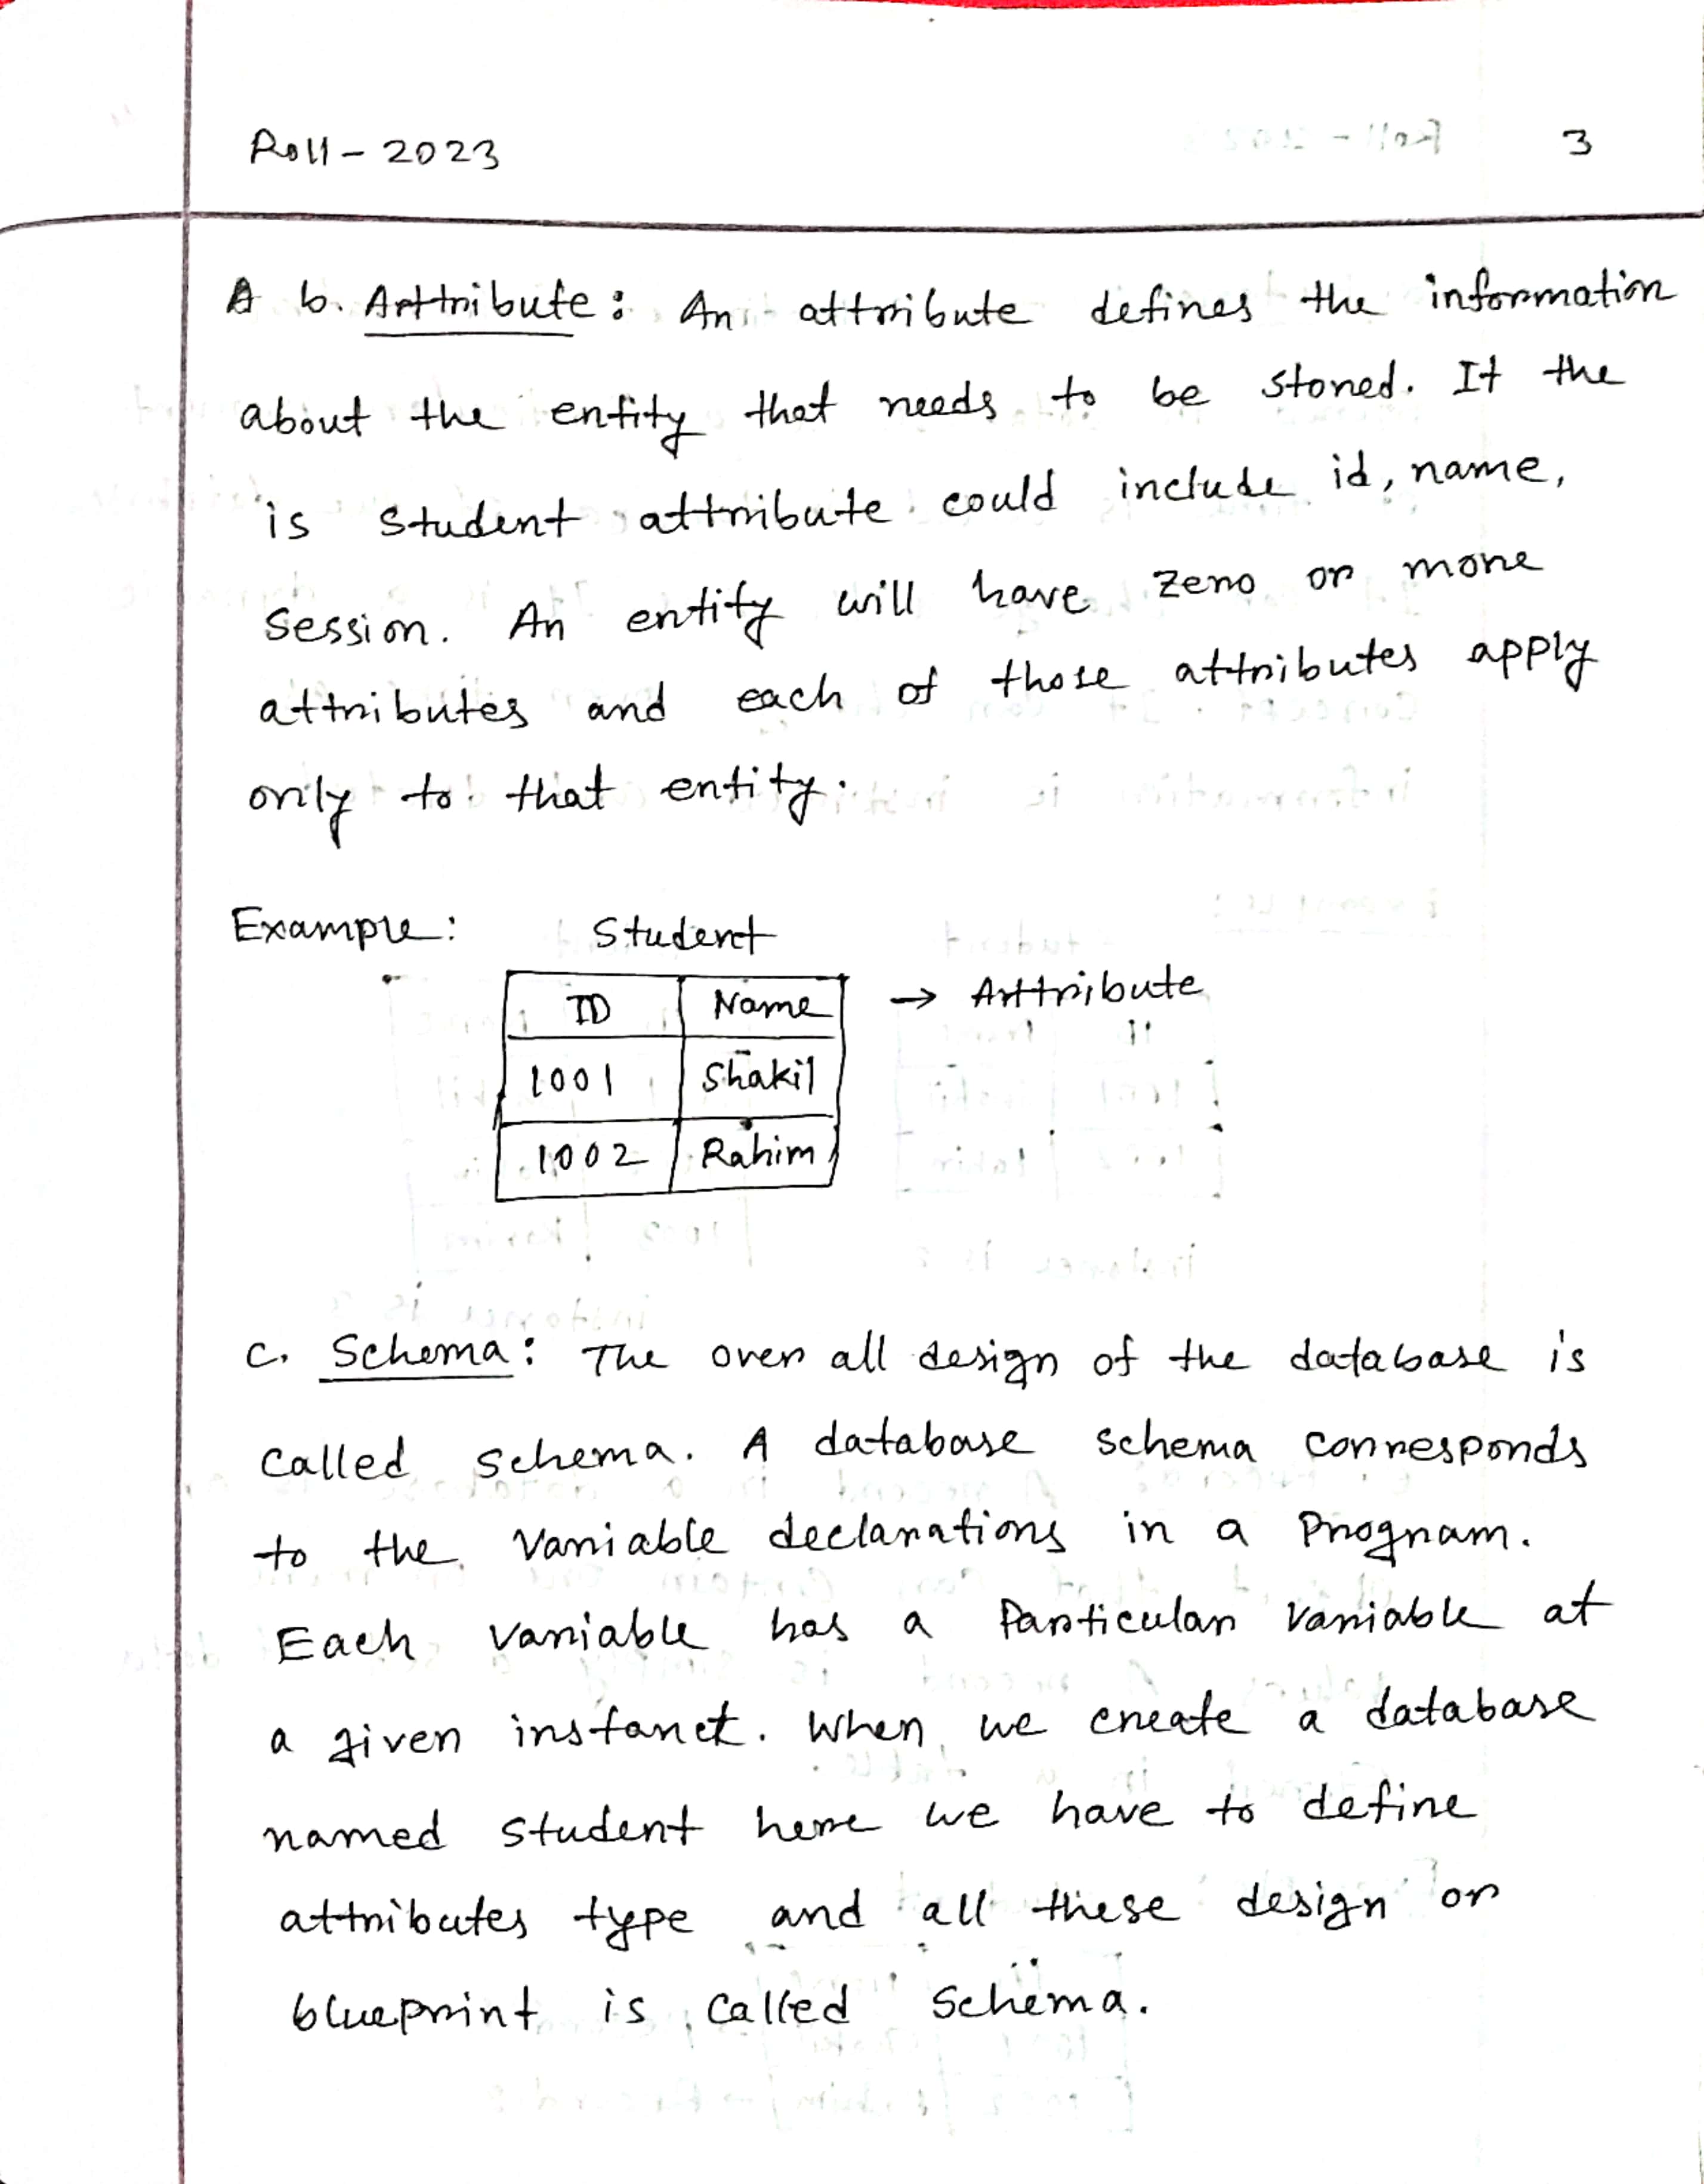 Roll - 2023
3
A b. Attribute: An attribute defines the information
about the entity that needs to be stored. It the
is student attribute could include id, name,
session. An entity will have zero or more
attributes and each of those attributes apply
only to that entity.
Example: Student
ID Name → Attribute
1001 Shakil
1002 Rahim
c. Schema: The over all design of the database is
called schema. A database schema corresponds
to the variable declarations in a Program.
Each variable has a Particular variable at
a given instanct. When we create a database
named student here we have to define
attributes type and all these design or
blueprint is called Schema.